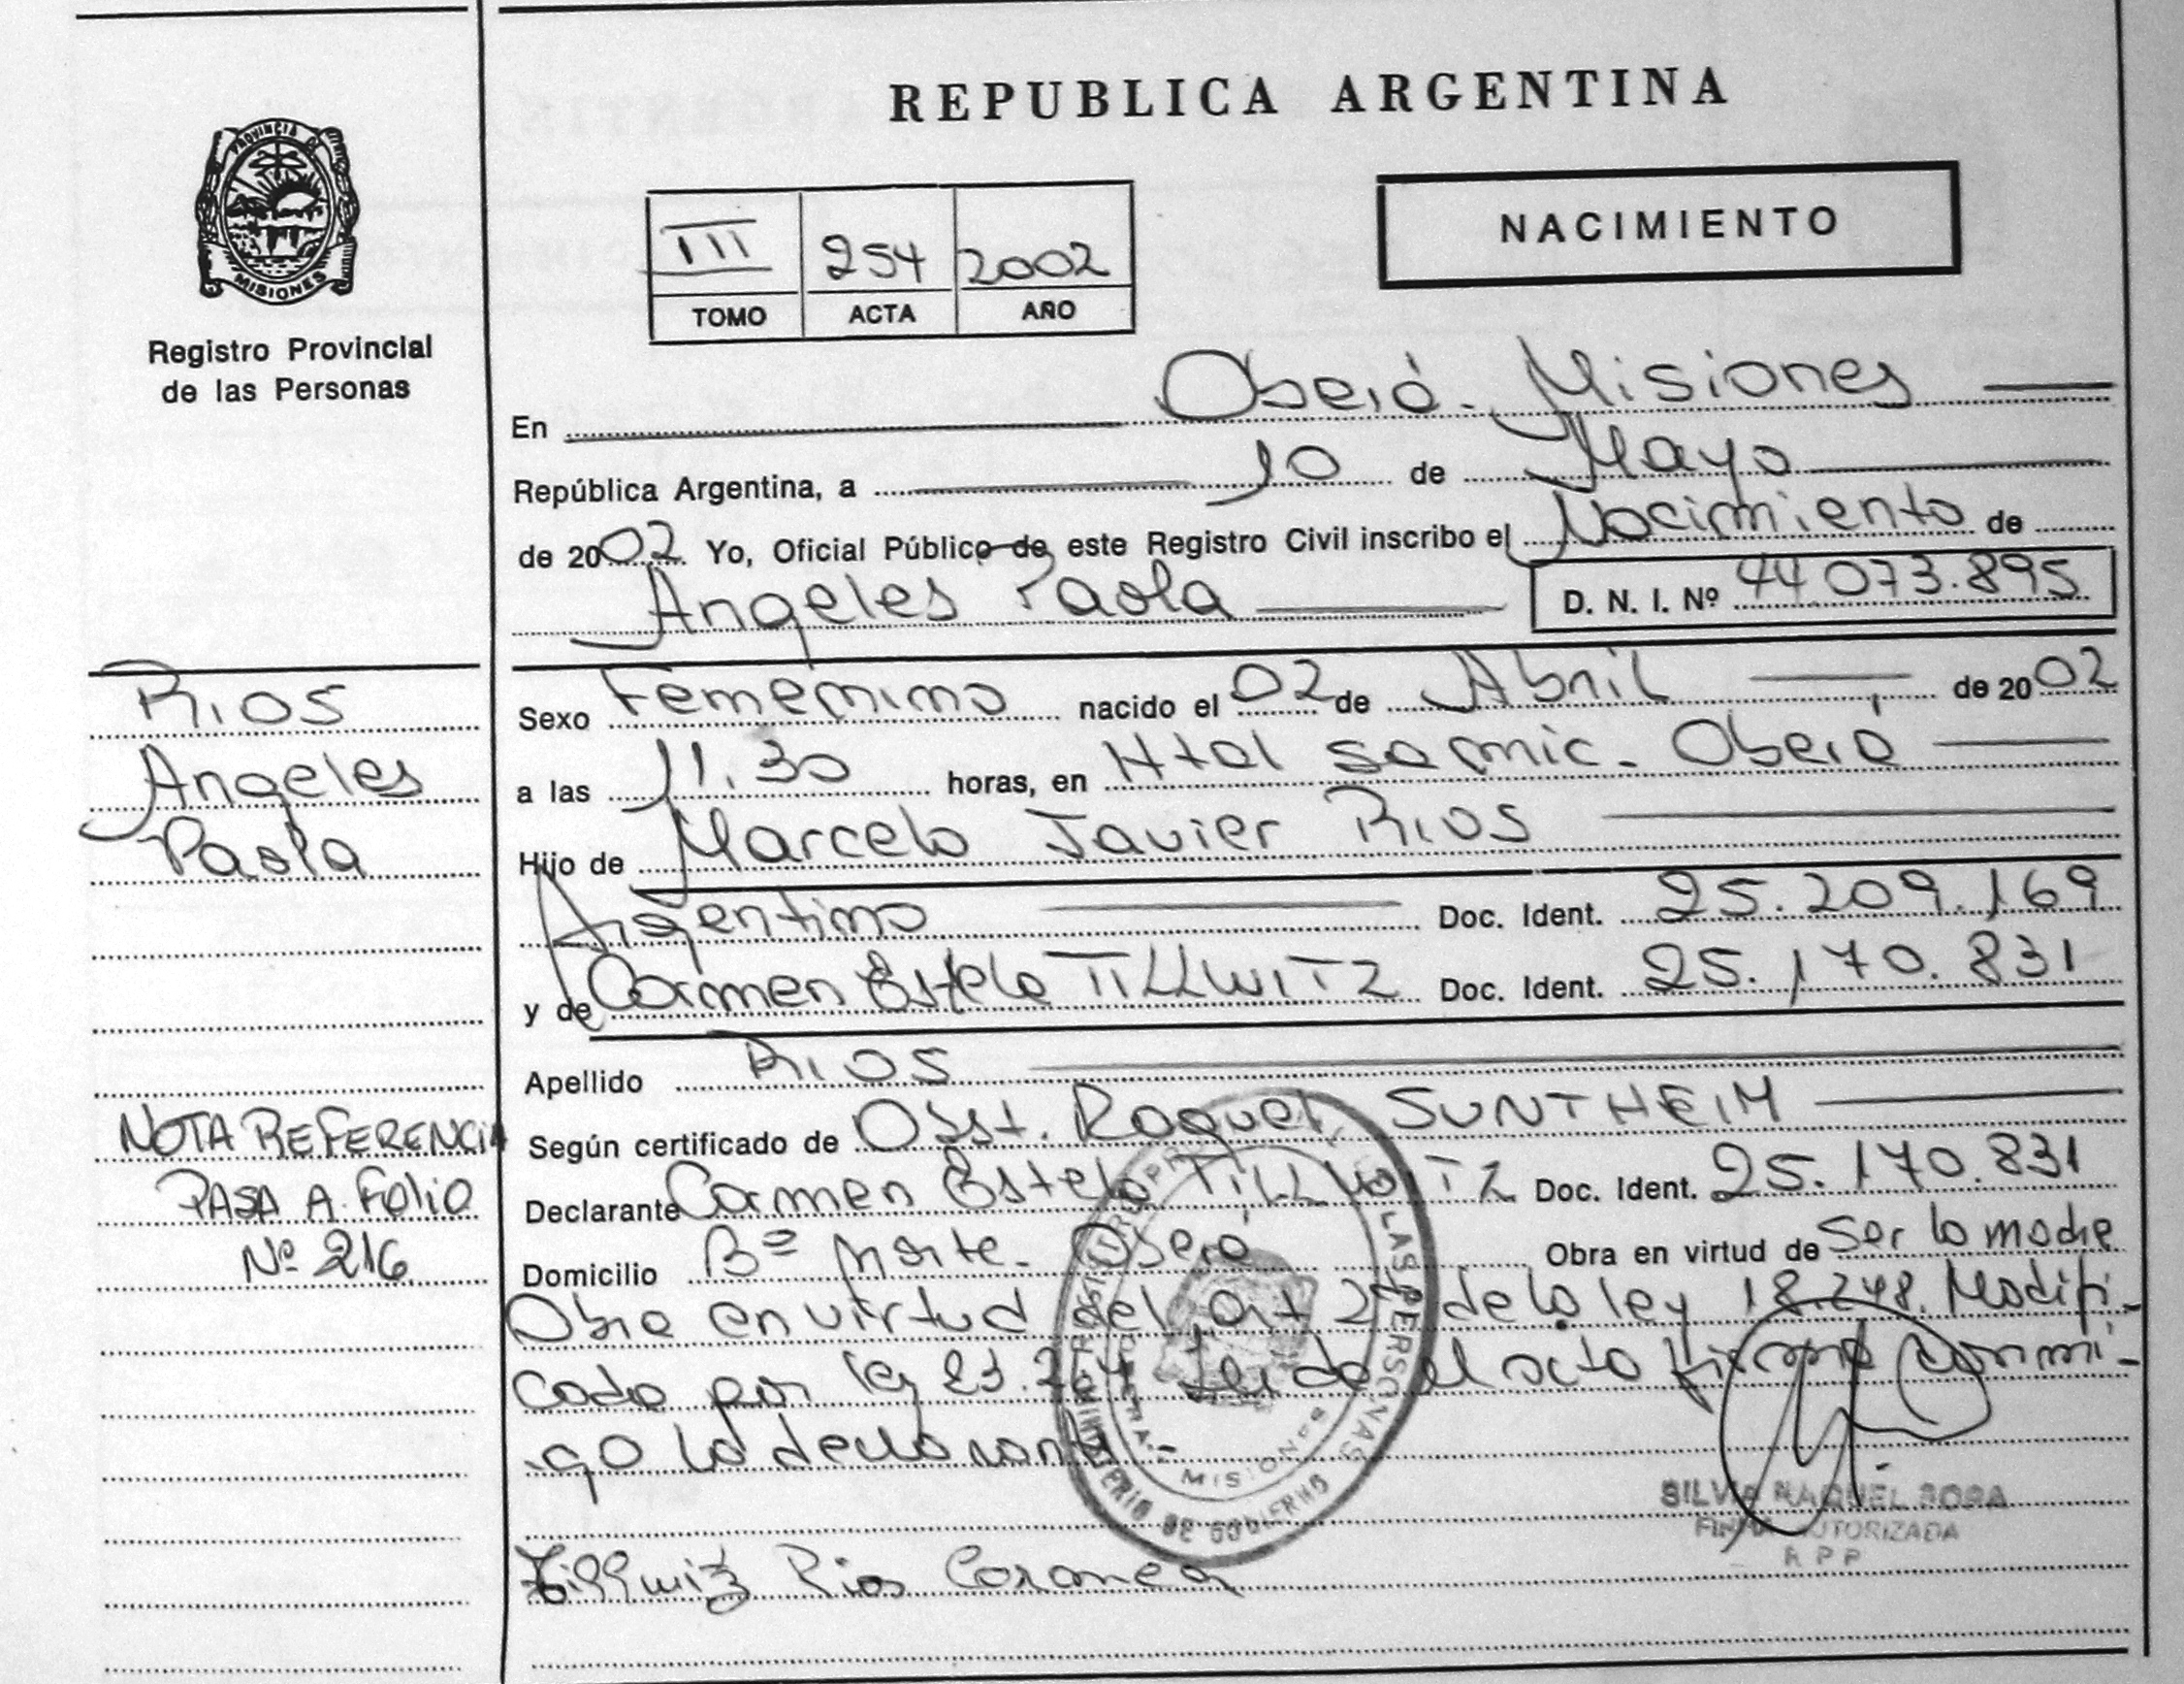 REPUBLICA ARGENTINA
PROVINCIA DE
MISIONES
Registro Provincial
de las Personas
NACIMIENTO
III 254 2002
TOMO ACTA AÑO
En Oberá. Misiones
República Argentina, a 10 de Mayo
de 2002 Yo, Oficial Público de este Registro Civil inscribo el Nacimiento de
Angeles Paola D. N. I. Nº 44 073.895
Rios
Angeles
Paola
Sexo Femenino nacido el 02 de Abril de 2002
a las 11.30 horas, en Htal Samic. Oberá
Hijo de Marcelo Javier Rios
Argentino Doc. Ident. 25.209.169
y de Carmen Estela TILLWITZ Doc. Ident. 25.170.831
Apellido Rios
NOTA REFERENCIA
PASA A FOLIO
Nº 216
Según certificado de Obst. Raquel SUNTHEIM
Declarante Carmen Estela TILLWITZ Doc. Ident. 25.170.831
Domicilio Bº Norte. Oberá Obra en virtud de ser la madre
Obra en virtud del Art 2º de la ley 18.248. Modifi-
cada por ley 23.264 Leida el acta firma conmi-
go la declarante.-
MINISTERIO DE GOBIERNO
LAS PERSONAS
MISIONES
SILVIA RAQUEL SOSA
FIRMA AUTORIZADA
R P P
Tillwitz Rios Carmen